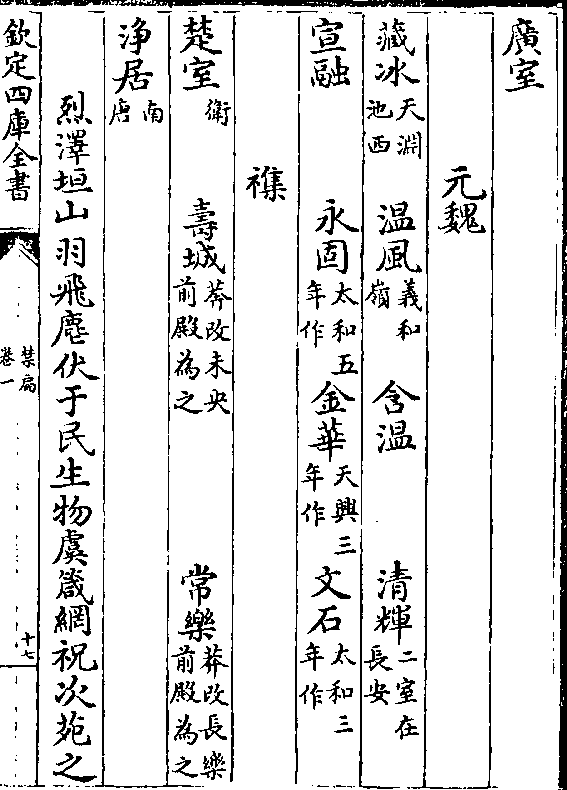 廣室
元魏
藏冰天淵池西 温風義和嶺 含温 清輝二室在長安
宣融 永固太和五年作 金華天興三年作 文石太和三年作
襍
楚室衛 壽城莽改未央前殿為之 常樂莽改長樂前殿為之
浄居南唐
烈澤垣山羽飛麀伏于民生物虞箴網祝次苑之
欽定四庫全書
禁扁
卷一
十七